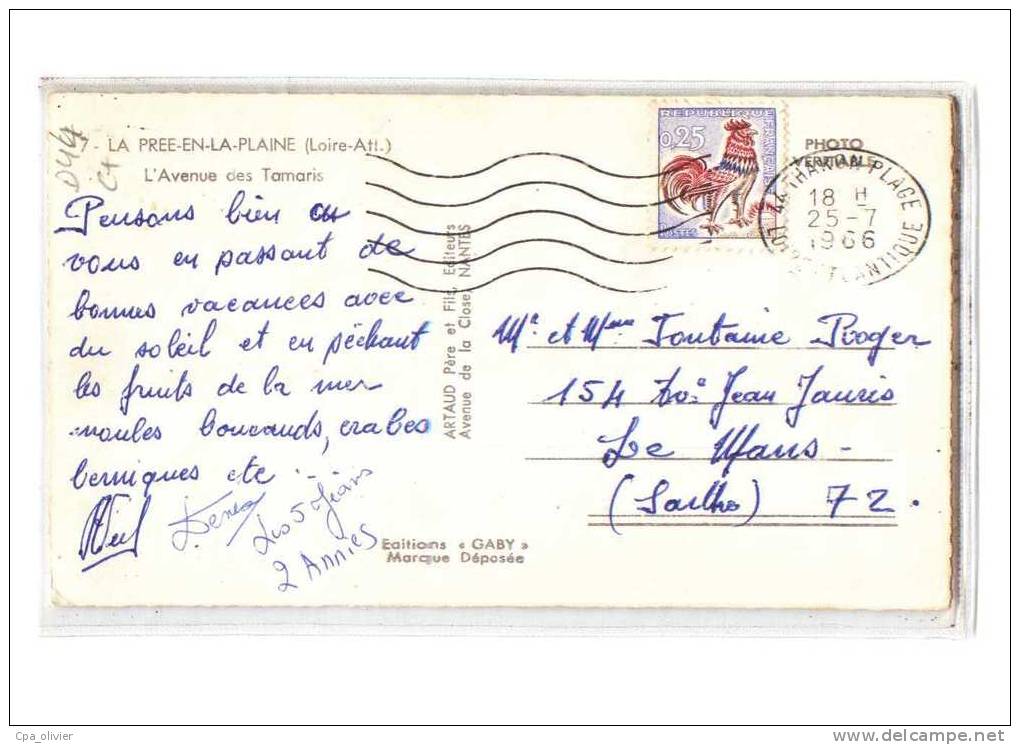 D44
Ct
- LA PREE-EN-LA-PLAINE (Loire-Att.)
L'Avenue des Tamaris
Pensons bien à
vous en passant de
bonnes vacances avec
du soleil et en pêchant
les fruits de la mer
moules boucauds, crabes
berniques etc
Les 5 Jeans
2 Annies
ARTAUD Père et Fils, Editeurs
Avenue de la Close, NANTES
Editions « GABY »
Marque Déposée
REPUBLIQUE FRANÇAISE
0,25
POSTES
PHOTO
VERITABLE
44 THARON PLAGE
18 H
25-7
1966
LOIRE ATLANTIQUE
Mr et Mme Fontaine Roger
154 Ave Jean Jaurès
Le Mans -
(Sarthe) 72.
Cpa_olivier
www.delcampe.net